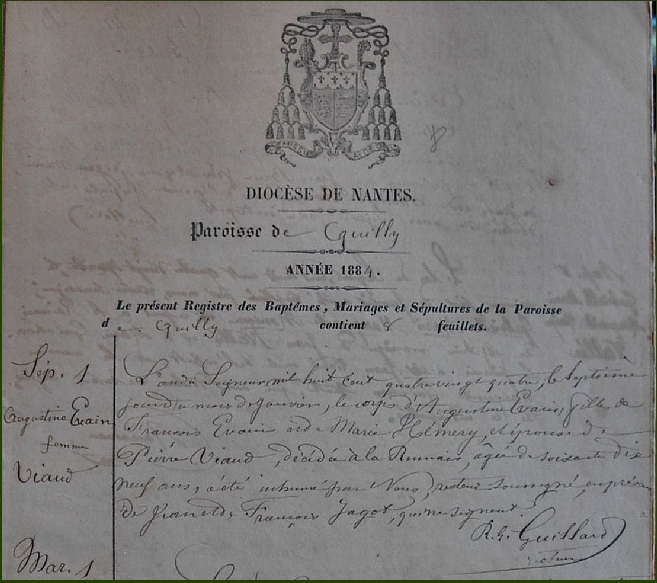 DIOCÈSE DE NANTES.
Paroisse de Quilly
ANNÉE 1884.
Le présent Registre des Baptêmes, Mariages et Sépultures de la Paroisse
de Quilly contient 8 feuillets.
Sep. 1
Augustine Evain
femme
Viaud
L'an du Seigneur mil huit cent quatre vingt quatre, le septième
jour du mois de Janvier, le corps d'Augustine Evain, fille de
François Evain et de Marie Hémery, et épouse de
Pierre Viaud, décédée à la, agée de soixante dix
neuf ans, a été inhumé par Nous, recteur soussigné, en présence
de Jean et de François Jagot, qui ne signent.
R. G. Guillard
recteur
Mar. 1